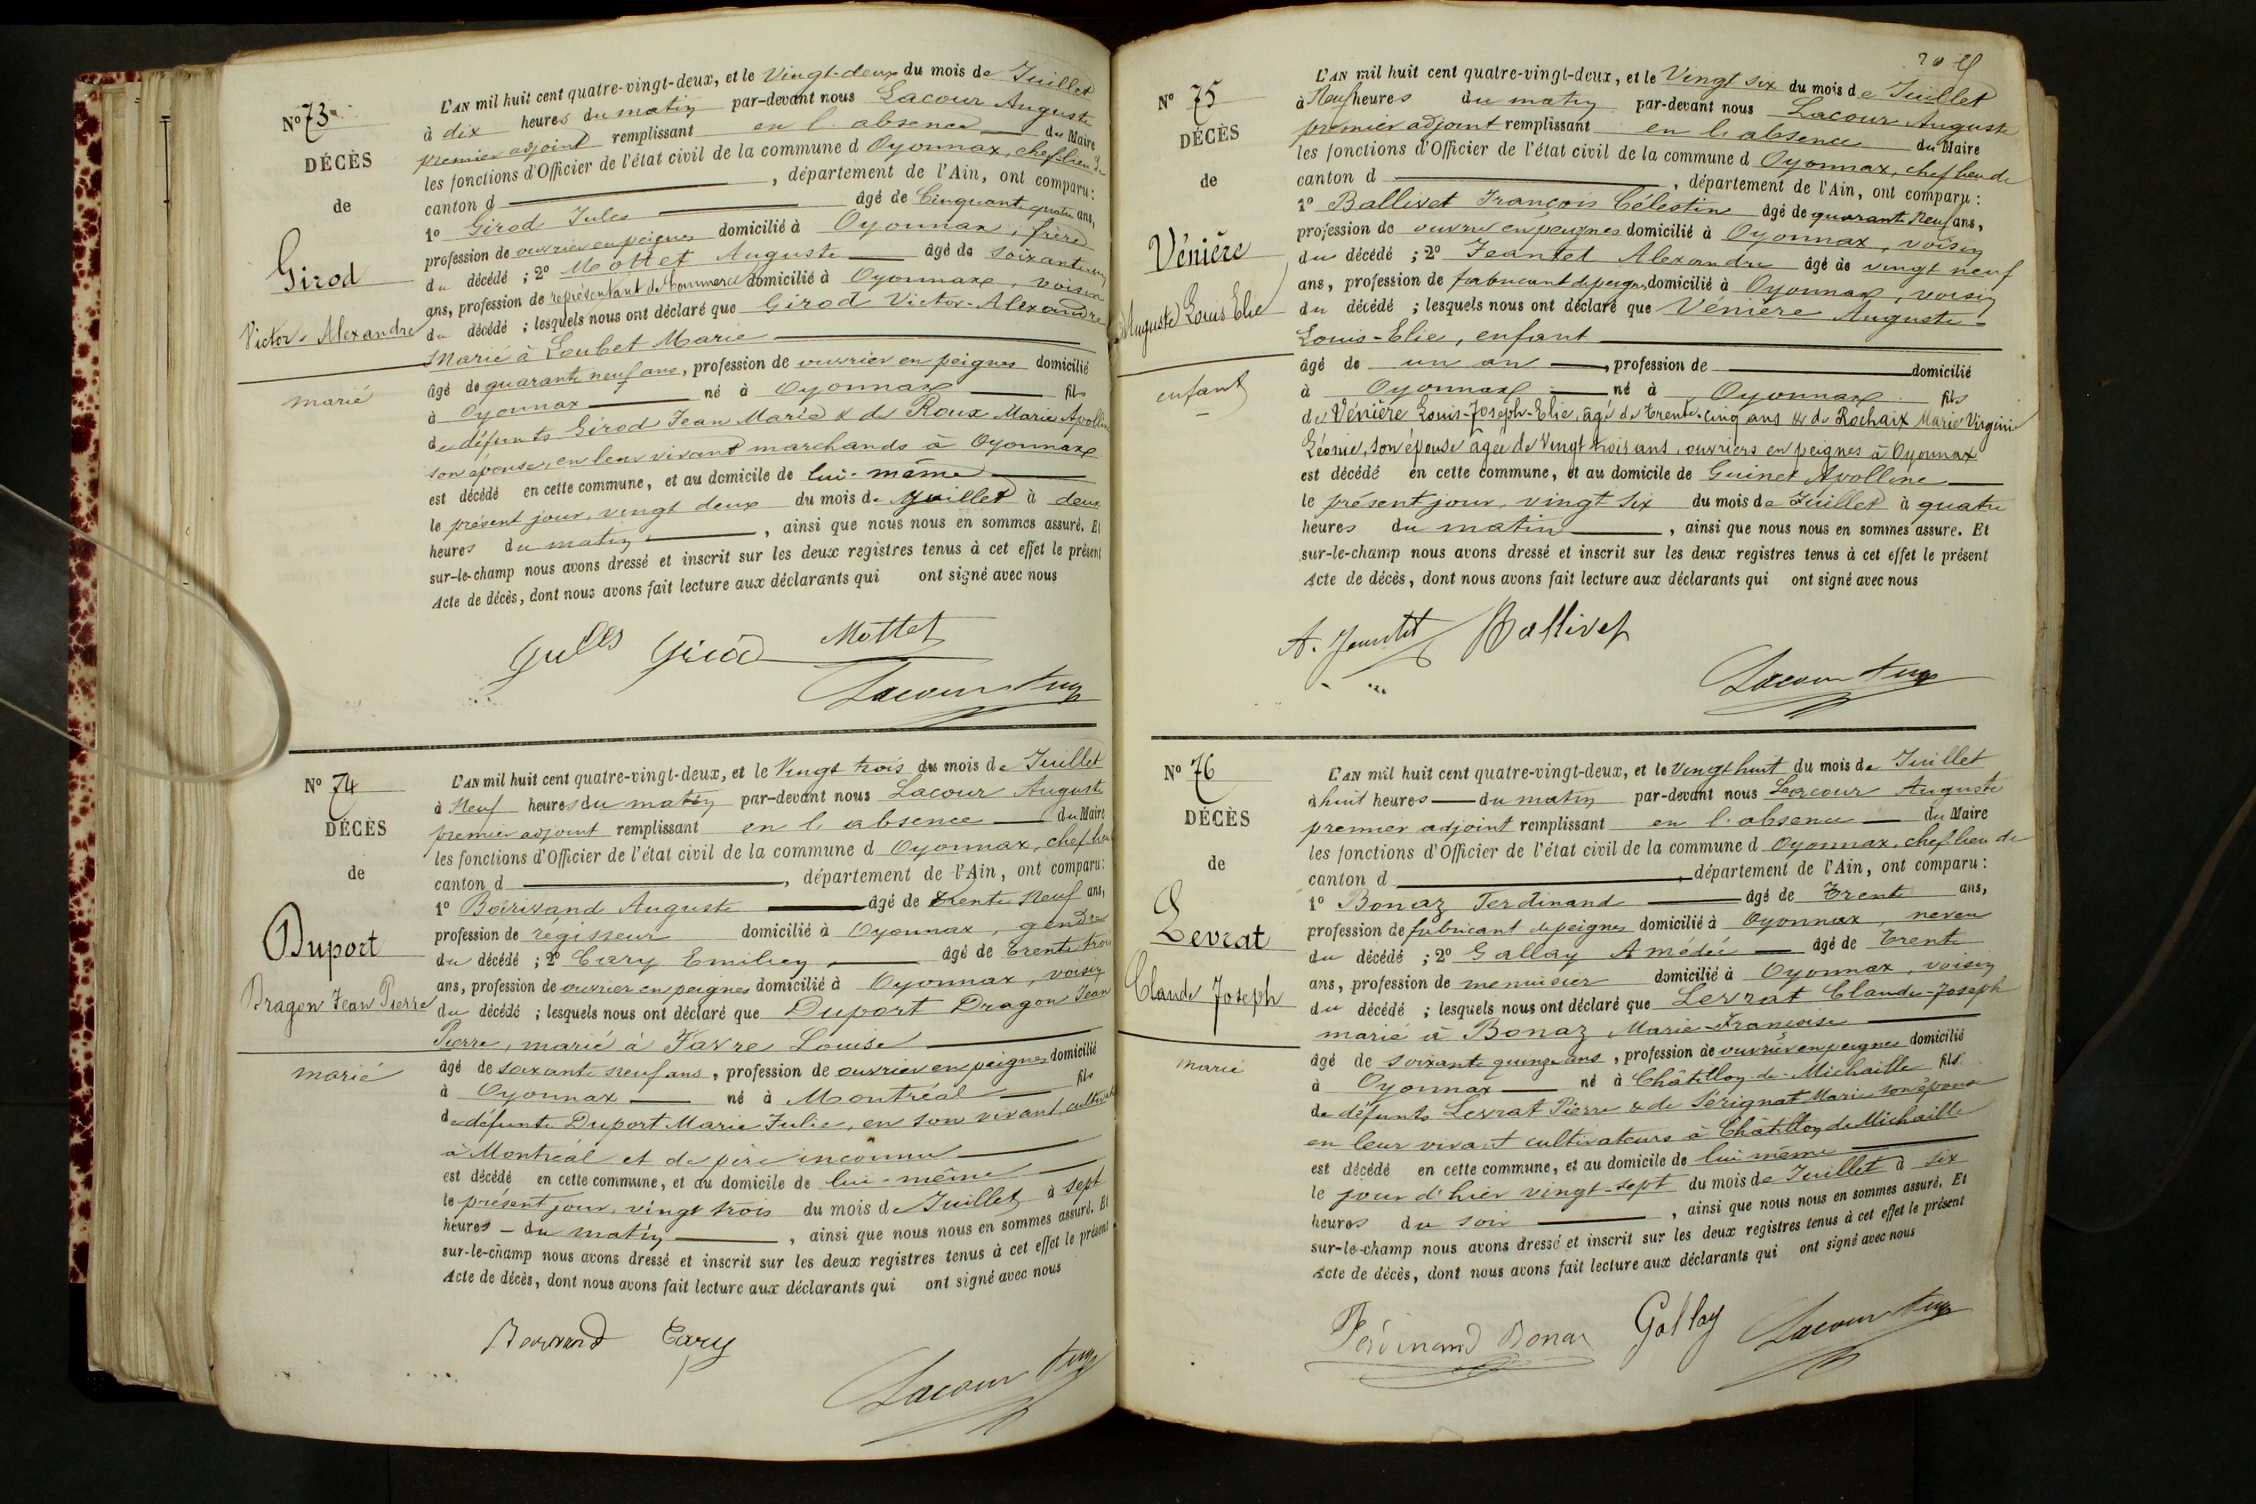 No 73
DÉCÈS
de
Girod
Victor-Alexandre
marié
L'AN mil huit cent quatre-vingt-deux, et le Vingt-deux du mois de Juillet
à dix heures du matin par-devant nous Lacour Auguste
premier adjoint remplissant en l'absence du Maire
les fonctions d'Officier de l'état civil de la commune d Oyonnax, chef-lieu de
canton d , département de l'Ain, ont comparu :
1º Girod Jules âgé de Cinquante quatre ans,
profession de ouvrier en peignes domicilié à Oyonnax, frère
du décédé ; 2º Mottet Auguste âgé de soixante
ans, profession de représentant de Commerce domicilié à Oyonnax, voisin
du décédé ; lesquels nous ont déclaré que Girod Victor-Alexandre
Marié à Loubet Marie
âgé de quarante neuf ans, profession de ouvrier en peignes domicilié
à Oyonnax né à Oyonnax fils
de défunts Girod Jean Marie & de Roux Marie Apolline
son épouse, en leur vivant marchands à Oyonnax
est décédé en cette commune, et au domicile de lui-même
le présent jour, vingt deux du mois de Juillet à deux
heures du matin , ainsi que nous nous en sommes assuré. Et
sur-le-champ nous avons dressé et inscrit sur les deux registres tenus à cet effet le présent
Acte de décès, dont nous avons fait lecture aux déclarants qui ont signé avec nous
Mottet
Lacour Aug
No 74
DÉCÈS
de
Duport
Dragon Jean Pierre
marié
L'AN mil huit cent quatre-vingt-deux, et le Vingt trois du mois de Juillet
à Neuf heures du matin par-devant nous Lacour Auguste
premier adjoint remplissant en l'absence du Maire
les fonctions d'Officier de l'état civil de la commune d Oyonnax, chef lieu
canton d , département de l'Ain, ont comparu :
1º Auguste âgé de trente Neuf ans,
profession de régisseur domicilié à Oyonnax, gendre
du décédé ; 2º Cary Emilien âgé de Trente trois
ans, profession de ouvrier en peignes domicilié à Oyonnax, voisin
du décédé ; lesquels nous ont déclaré que Duport Dragon Jean
Pierre, marié à Favre Louise
âgé de soixante neuf ans, profession de ouvrier en peignes domicilié
à Oyonnax né à Montréal fils
de défunte Duport Marie Julie, en son vivant
à Montréal et de père inconnu
est décédé en cette commune, et au domicile de lui-même
le présent jour, vingt trois du mois de Juillet à sept
heures du matin , ainsi que nous nous en sommes assuré. Et
sur-le-champ nous avons dressé et inscrit sur les deux registres tenus à cet effet le présent
Acte de décès, dont nous avons fait lecture aux déclarants qui ont signé avec nous
Cary
Lacour Aug
No 75
DÉCÈS
de
Vénière
Auguste Louis Elie
enfant
L'AN mil huit cent quatre-vingt-deux, et le Vingt six du mois de Juillet
à Neuf heures du matin par-devant nous Lacour Auguste
premier adjoint remplissant en l'absence du Maire
les fonctions d'Officier de l'état civil de la commune d Oyonnax, chef lieu de
canton d , département de l'Ain, ont comparu :
1º Ballivet François Célestin âgé de quarant Neuf ans,
profession de ouvrier en peignes domicilié à Oyonnax, voisin
du décédé ; 2º Jeantet Alexandre âgé de vingt neuf
ans, profession de fabricant de peignes domicilié à Oyonnax, voisin
du décédé ; lesquels nous ont déclaré que Vénière Auguste-
Louis-Elie, enfant
âgé de un an , profession de domicilié
à Oyonnax né à Oyonnax fils
de Vénière Louis-Joseph-Elie, âgé de trente-cinq ans & de Rochaix Marie Virginie
Léonie, son épouse âgée de Vingt trois ans, ouvriers en peignes à Oyonnax
est décédé en cette commune, et au domicile de Guinet Apolline
le présent jour, vingt six du mois de Juillet à quatre
heures du matin , ainsi que nous nous en sommes assuré. Et
sur-le-champ nous avons dressé et inscrit sur les deux registres tenus à cet effet le présent
Acte de décès, dont nous avons fait lecture aux déclarants qui ont signé avec nous
A. Jeantet Ballivet
Lacour Aug
No 76
DÉCÈS
de
Levrat
Claude Joseph
marié
L'AN mil huit cent quatre-vingt-deux, et le vingt huit du mois de Juillet
à huit heures du matin par-devant nous Lacour Auguste
premier adjoint remplissant en l'absence du Maire
les fonctions d'Officier de l'état civil de la commune d Oyonnax, chef lieu de
canton d , département de l'Ain, ont comparu :
1º Bonaz Ferdinand âgé de Trente ans,
profession de fabricant de peignes domicilié à Oyonnax, neveu
du décédé ; 2º Gallay Amédée âgé de Trente
ans, profession de menuisier domicilié à Oyonnax, voisin
du décédé ; lesquels nous ont déclaré que Levrat Claude-Joseph
marié à Bonaz Marie-Françoise
âgé de soixante quinze ans, profession de ouvrier en peignes domicilié
à Oyonnax né à Châtillon-de-Michaille fils
de défunts Levrat Pierre & de Sérignat Marie son épouse
en leur vivant cultivateurs à Châtillon de Michaille
est décédé en cette commune, et au domicile de lui même
le jour d'hier vingt-sept du mois de Juillet à six
heures du soir , ainsi que nous nous en sommes assuré. Et
sur-le-champ nous avons dressé et inscrit sur les deux registres tenus à cet effet le présent
Acte de décès, dont nous avons fait lecture aux déclarants qui ont signé avec nous
Ferdinand Bonaz Gallay Lacour Aug